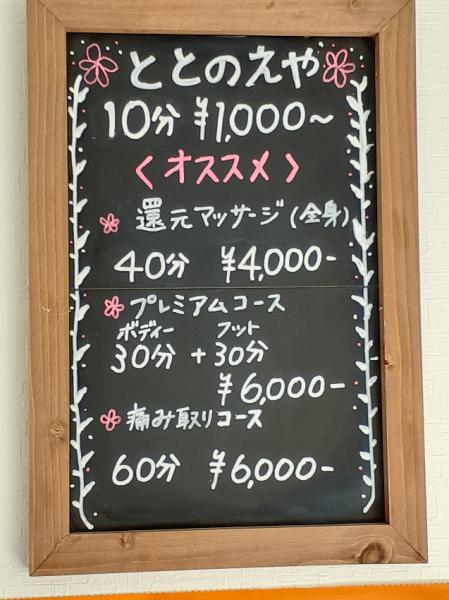 ととのえや
10分 ¥1,000～
〈オススメ〉
還元マッサージ(全身)
40分 ¥4,000-
プレミアムコース
ボディー フット
30分 + 30分
¥6,000-
痛み取りコース
60分 ¥6,000-